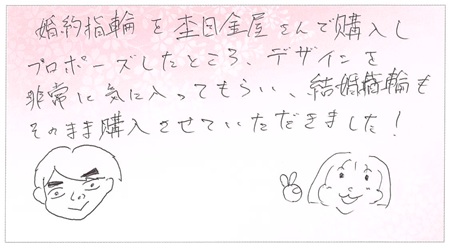 婚約指輪を杢目金屋さんで購入し
プロポーズしたところ、デザインを
非常に気に入ってもらい、結婚指輪も
そのまま購入させていただきました!